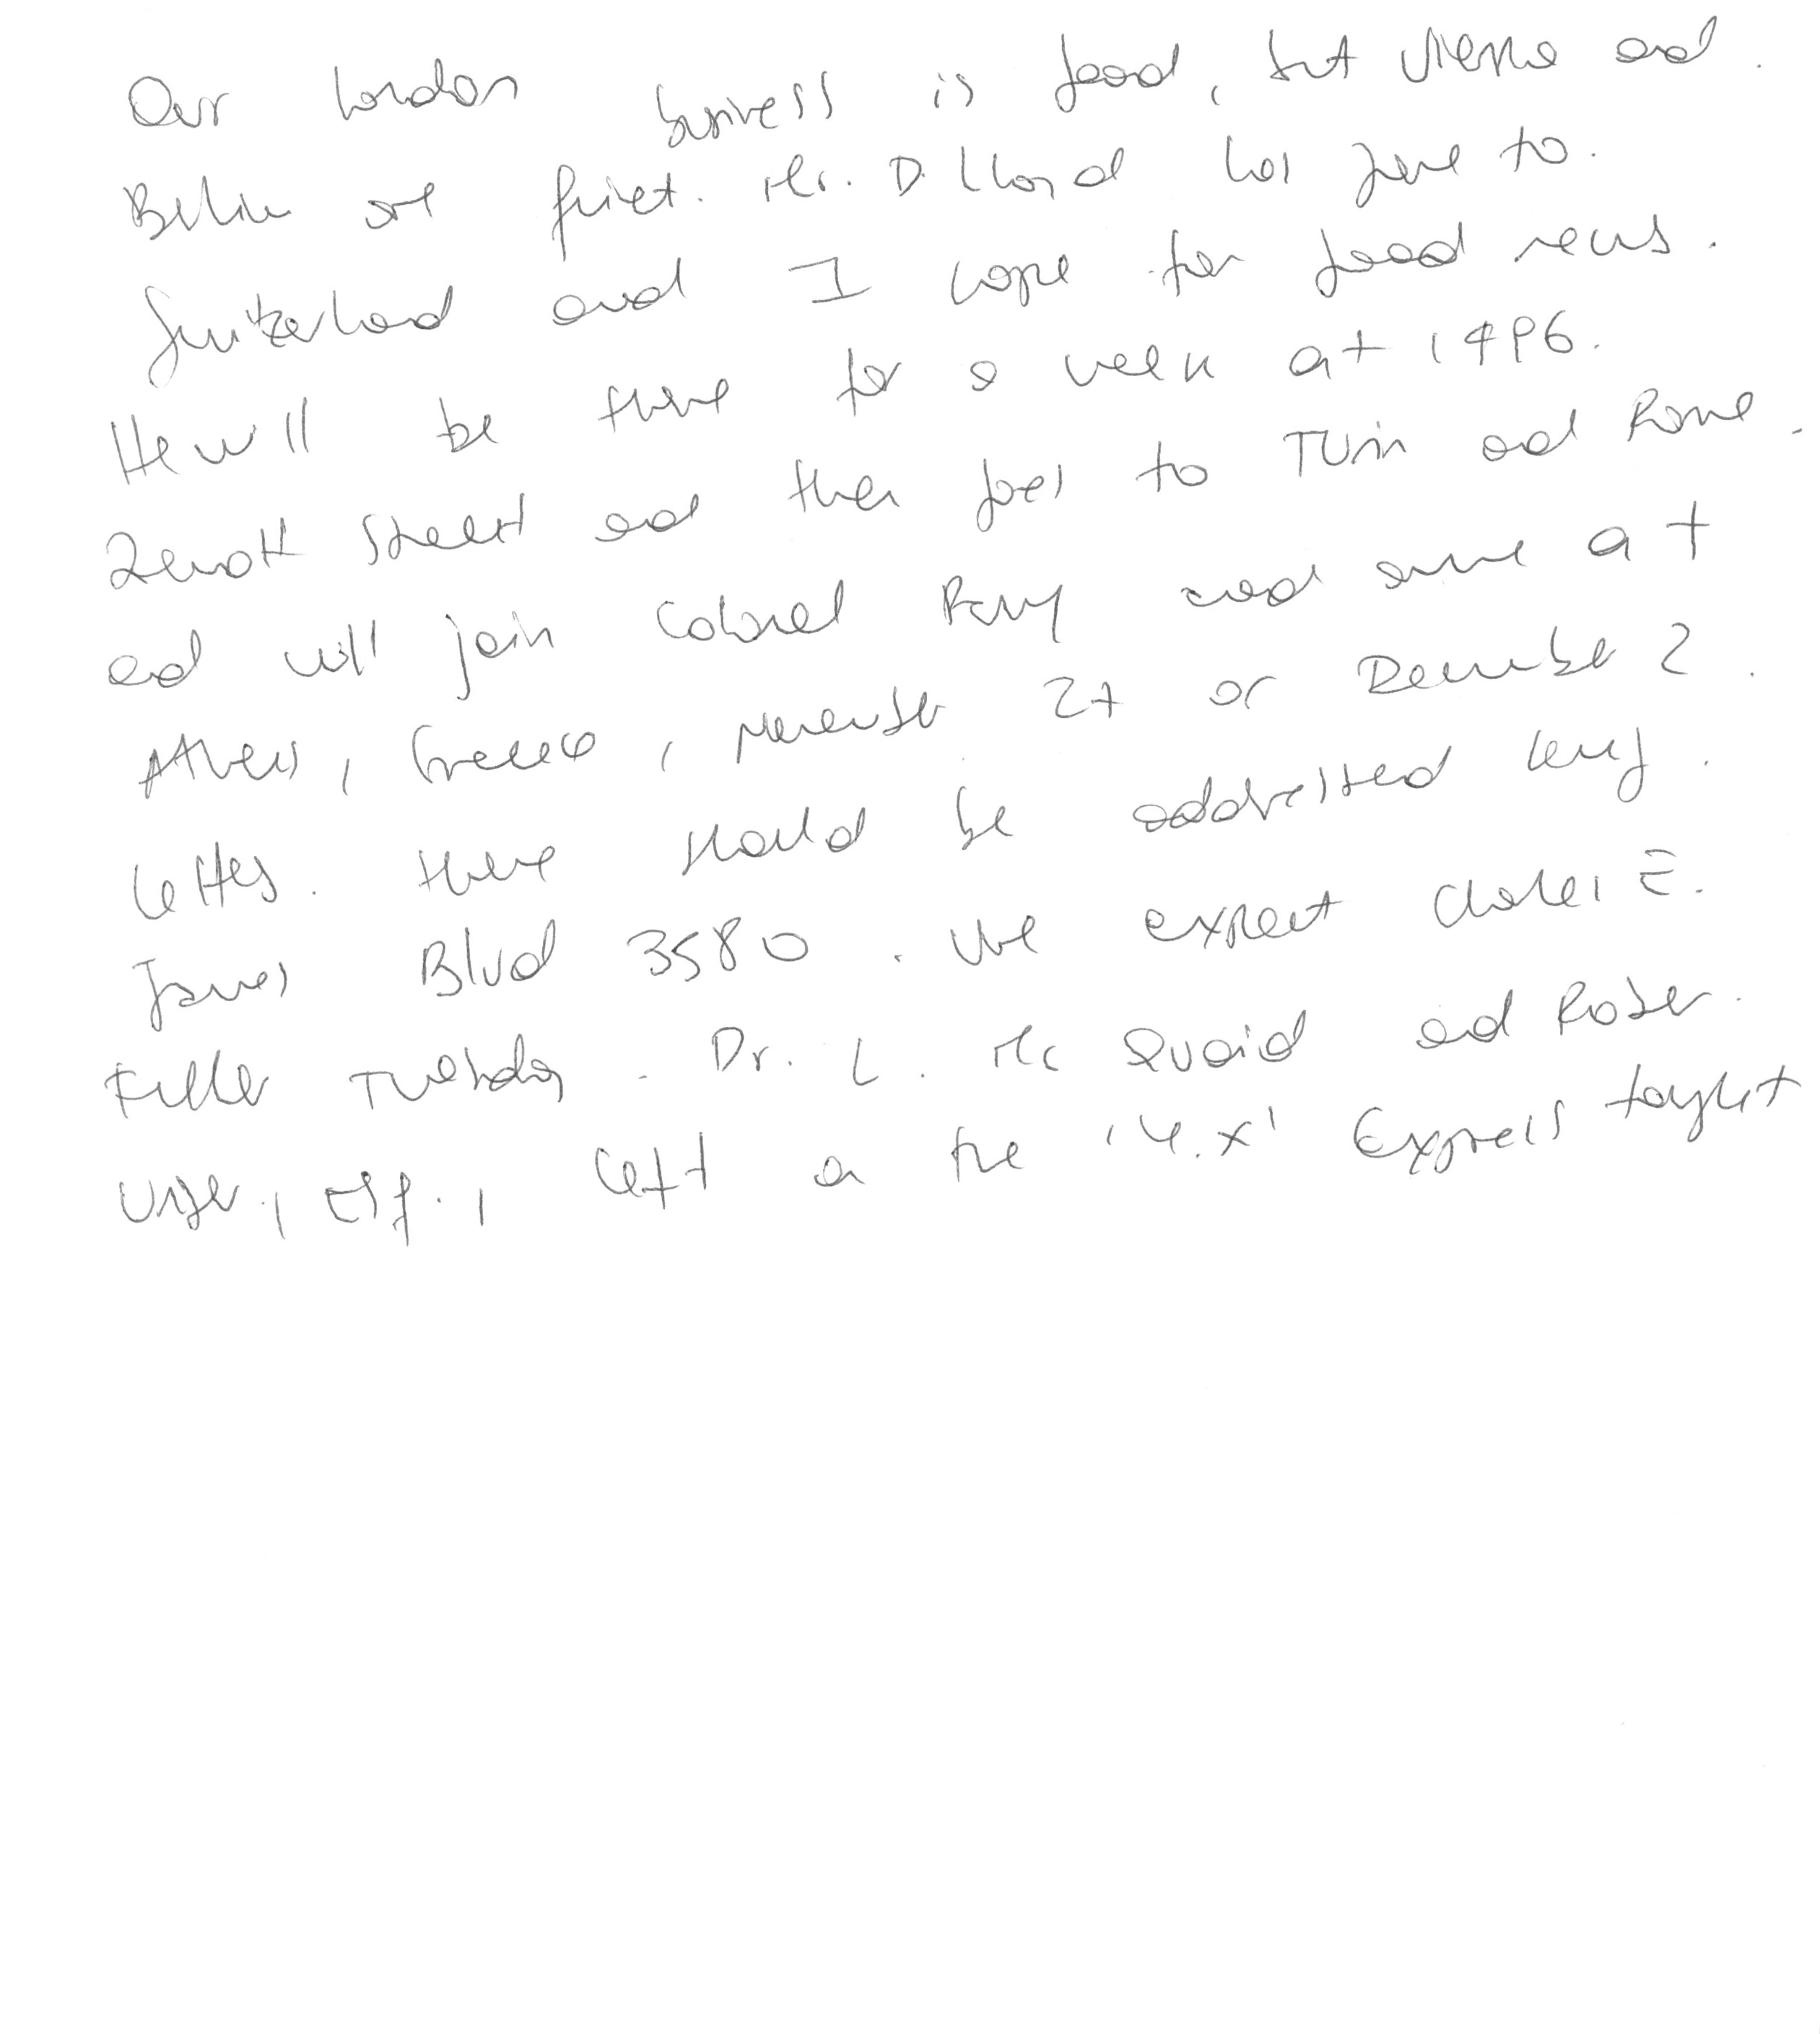 Our London business is good, but Vienna and.
Berlin are quiet. Mr. D. Lloyd has gone to.
Switzerland and I hope for good news.
He will be there for a week at 1496.
Zermott Street and then goes to Turin and Rome.
and will join Colonel Parry and arrive at
Athens, Greece, November 27 or December 2.
Letters. there should be addressed King.
James Blvd 3580. We expect Charles E.
Fuller Tuesday. Dr. L. Mc Quaid and Robert.
Unger, Esq., left on the 'Y.X' Express tonight